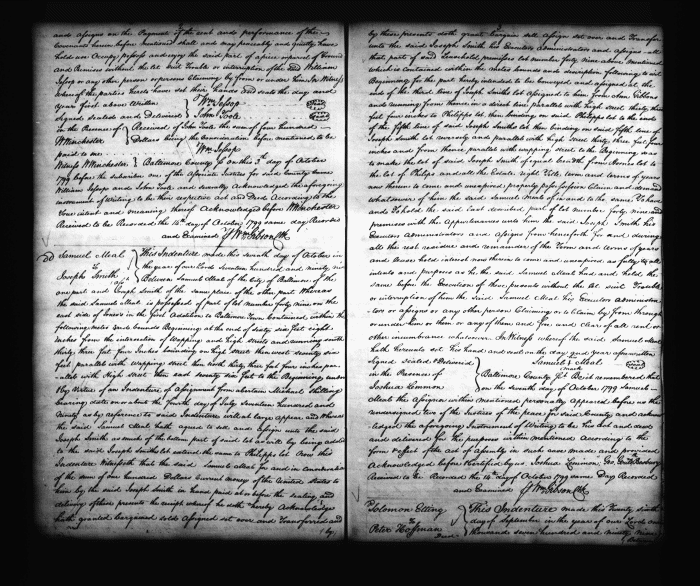 and assigns on the Payment of the rent and performance of the
Covenants herein before mentioned shall and may peaceably and quietly have
hold use Occupy possess and enjoy the said part of a piece or parcel of Ground
and Premises without the let suit trouble or interruption of the said William
Jessop or any other person or persons Claiming by from or under him In Witness
whereof the parties hereto have set their hands and seals the day and
year first above Written
Wm Jessop
Signed sealed and Delivered John Toole
in the Presence of Received of John Toole the sum of four hundred
WWinchester Dollars being the Consideration before mentioned to be
paid to me Wm Jessop
Witness WWinchester Baltimore County ss on this 3d day of October
1799 before the subscriber one of the Associate Justices for said County came
William Jessop and John Toole and severally Acknowledged the aforegoing
instrument of Writing to be their respective act and Deed According to the
true intent and meaning thereof Acknowledged before WWinchester
Received to be Recorded the 14th day of October 1799 same day Recorded
and Examined Wm Gibson Clk
Samuel Meal This Indenture made this seventh day of October in
to the year of our Lord Seventeen hundred and ninety nine
Joseph Smith Between Samuel Meal of the City of Baltimore of the
one part and Joseph Smith of the same place of the other part Whereas
the said Samuel Meal is possessed of part of lot number forty nine on the
east side of in the first Addition to Baltimore Town Contained within the
following metes and bounds Beginning at the end of sixty six feet eight
inches from the intersection of Wapping and high streets and running south
thirty three feet four Inches bounding on high street then west seventy six
feet parallel with wapping street then north thirty three feet four inches par-
allel with High street then east seventy six feet to the Beginning
by Virtue of an Indenture of Assignment from a certain Michael
bearing date on or about the fourth day of July Seventeen hundred and
Ninety as reference to said Indenture will at large appear and Whereas
the said Samuel Meal hath agreed to sell and Assign unto the said
Joseph Smith as much of the bottom part of said lot as will by being added
to the said Joseph Smiths lot extend the same to Philipps lot Now this
Indenture Witnesseth that the said Samuel Meal for and in consideration
of the sum of one hundred Dollars Current money of the United States to
him by the said Joseph Smith in hand paid at or before the sealing and
delivery of these presents the receipt whereof he doth hereby Acknowledge
hath granted bargained sold Assigned set over and Transferred and
by
by these presents doth grant bargain sell Assign set over and Transfer
unto the said Joseph Smith his Executors Administrators and Assigns all
that part of said Leasehold premises lot number forty nine above mentioned
which is contained within the metes bounds and description following to wit
Beginning for the part hereby intended to be bargained and assigned at the
end of the third line of Joseph Smiths lot Assigned to him from John Gibbons
and running from thence in a direct line parallel with high street thirty three
feet four inches to Philipps lot then binding on said Philipps lot to the end
of the fifth line of said Joseph Smiths lot then binding on said fifth line of
Joseph Smiths lot reversely and parallel with high street thirty three feet four
inches and from thence parallel with wapping street to the Beginning
to make the lot of said Joseph Smith of equal breadth from to
the lot of Philips and all the Estate right title term and terms of years
now therein to come and unexpired property possession Claim and demand
whatsoever of him the said Samuel Meal of in and to the same To have
and To hold the said last devoted part of lot number forty nine and
premises with the Appurtenances unto him the said Joseph Smith his
Executors Administrators and Assigns from henceforth for and during
all the rest residue and remainder of the Term and terms of years
and lease hold interest now therein to come and unexpired as fully to all
intents and purposes as he the said Samuel Meal had and held the
same before the Execution of these presents without the let suit Trouble
or interruption of him the said Samuel Meal his Executors administra-
tors or assigns or any other person Claiming or to claim by from through
or under him or them or any of them and free and clear of all rent or
other incumbrance whatsoever In Witness whereof the said Samuel Meal
hath hereunto set his hand and seal on the day and year aforewritten
Signed Sealed & Delivered Samuel Meal
in the Presence of mark
Joshua Lemmon Baltimore County ss Be it remembered that
on the seventh day of October 1799 Samuel
Meal the Assignor within mentioned personally Appeared before us the
undersigned two of the Justices of the peace for said County and acknow-
ledged the aforegoing Instrument of Writing to be his act and deed
and delivered for the purposes within mentioned According to the
form & effect of the act of Assembly in such case made and provided
Acknowledged before & Certified by us Joshua Lemmon Geo
Received to be Recorded the 14th day of October 1799 same Day Recorded
and Examined Wm Gibson Clk
Solomon Etting This Indenture made this twenty sixth
to day of September in the year of our Lord one
Peter Hoffman thousand seven hundred and ninety nine